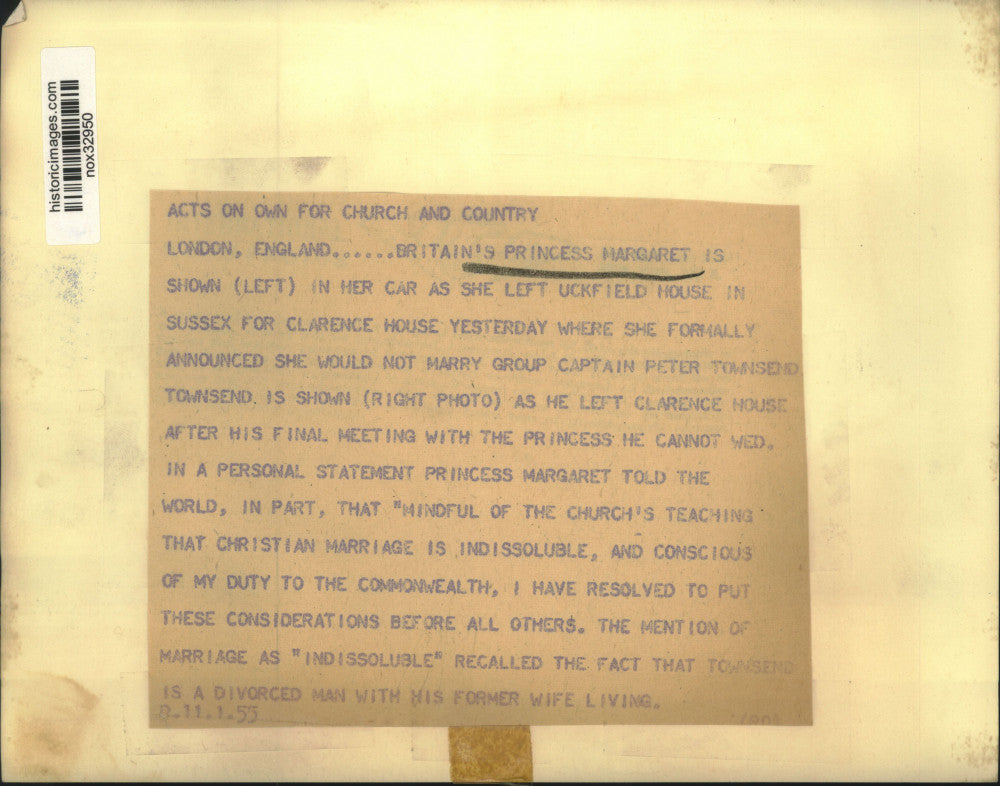 historicimages.com
nox32950
ACTS ON OWN FOR CHURCH AND COUNTRY
LONDON, ENGLAND......BRITAIN'S PRINCESS MARGARET IS
SHOWN (LEFT) IN HER CAR AS SHE LEFT UCKFIELD HOUSE IN
SUSSEX FOR CLARENCE HOUSE YESTERDAY WHERE SHE FORMALLY
ANNOUNCED SHE WOULD NOT MARRY GROUP CAPTAIN PETER TOWNSEND
TOWNSEND IS SHOWN (RIGHT PHOTO) AS HE LEFT CLARENCE HOUSE
AFTER HIS FINAL MEETING WITH THE PRINCESS HE CANNOT WED.
IN A PERSONAL STATEMENT PRINCESS MARGARET TOLD THE
WORLD, IN PART, THAT "MINDFUL OF THE CHURCH'S TEACHING
THAT CHRISTIAN MARRIAGE IS INDISSOLUBLE, AND CONSCIOUS
OF MY DUTY TO THE COMMONWEALTH, I HAVE RESOLVED TO PUT
THESE CONSIDERATIONS BEFORE ALL OTHERS. THE MENTION OF
MARRIAGE AS "INDISSOLUBLE" RECALLED THE FACT THAT TOWNSEND
IS A DIVORCED MAN WITH HIS FORMER WIFE LIVING.
11.1.55